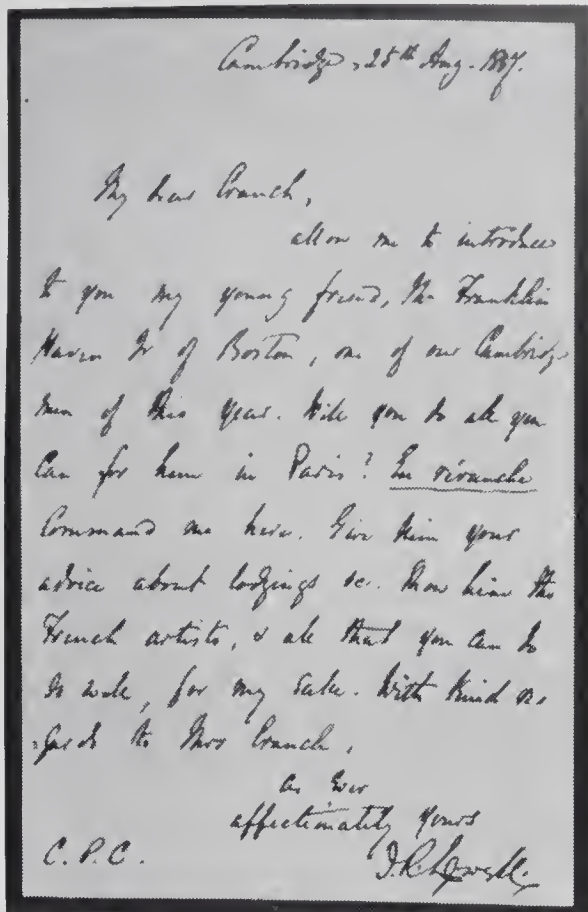 Cambridge, 25th Aug. 1857.
My dear Cranch,
allow me to introduce
to you my young friend, Mr Franklin
Haven Jr of Boston, one of our Cambridge
men of this year. Will you do all you
can for him in Paris? En revanche
command me here. Give him your
advice about lodgings &c. Show him the
French artists, & all that you can do
so well, for my sake. With kind re
gards to Mrs Cranch,
as ever
affectionately yours
C. P. C.
J. R. Lowell.